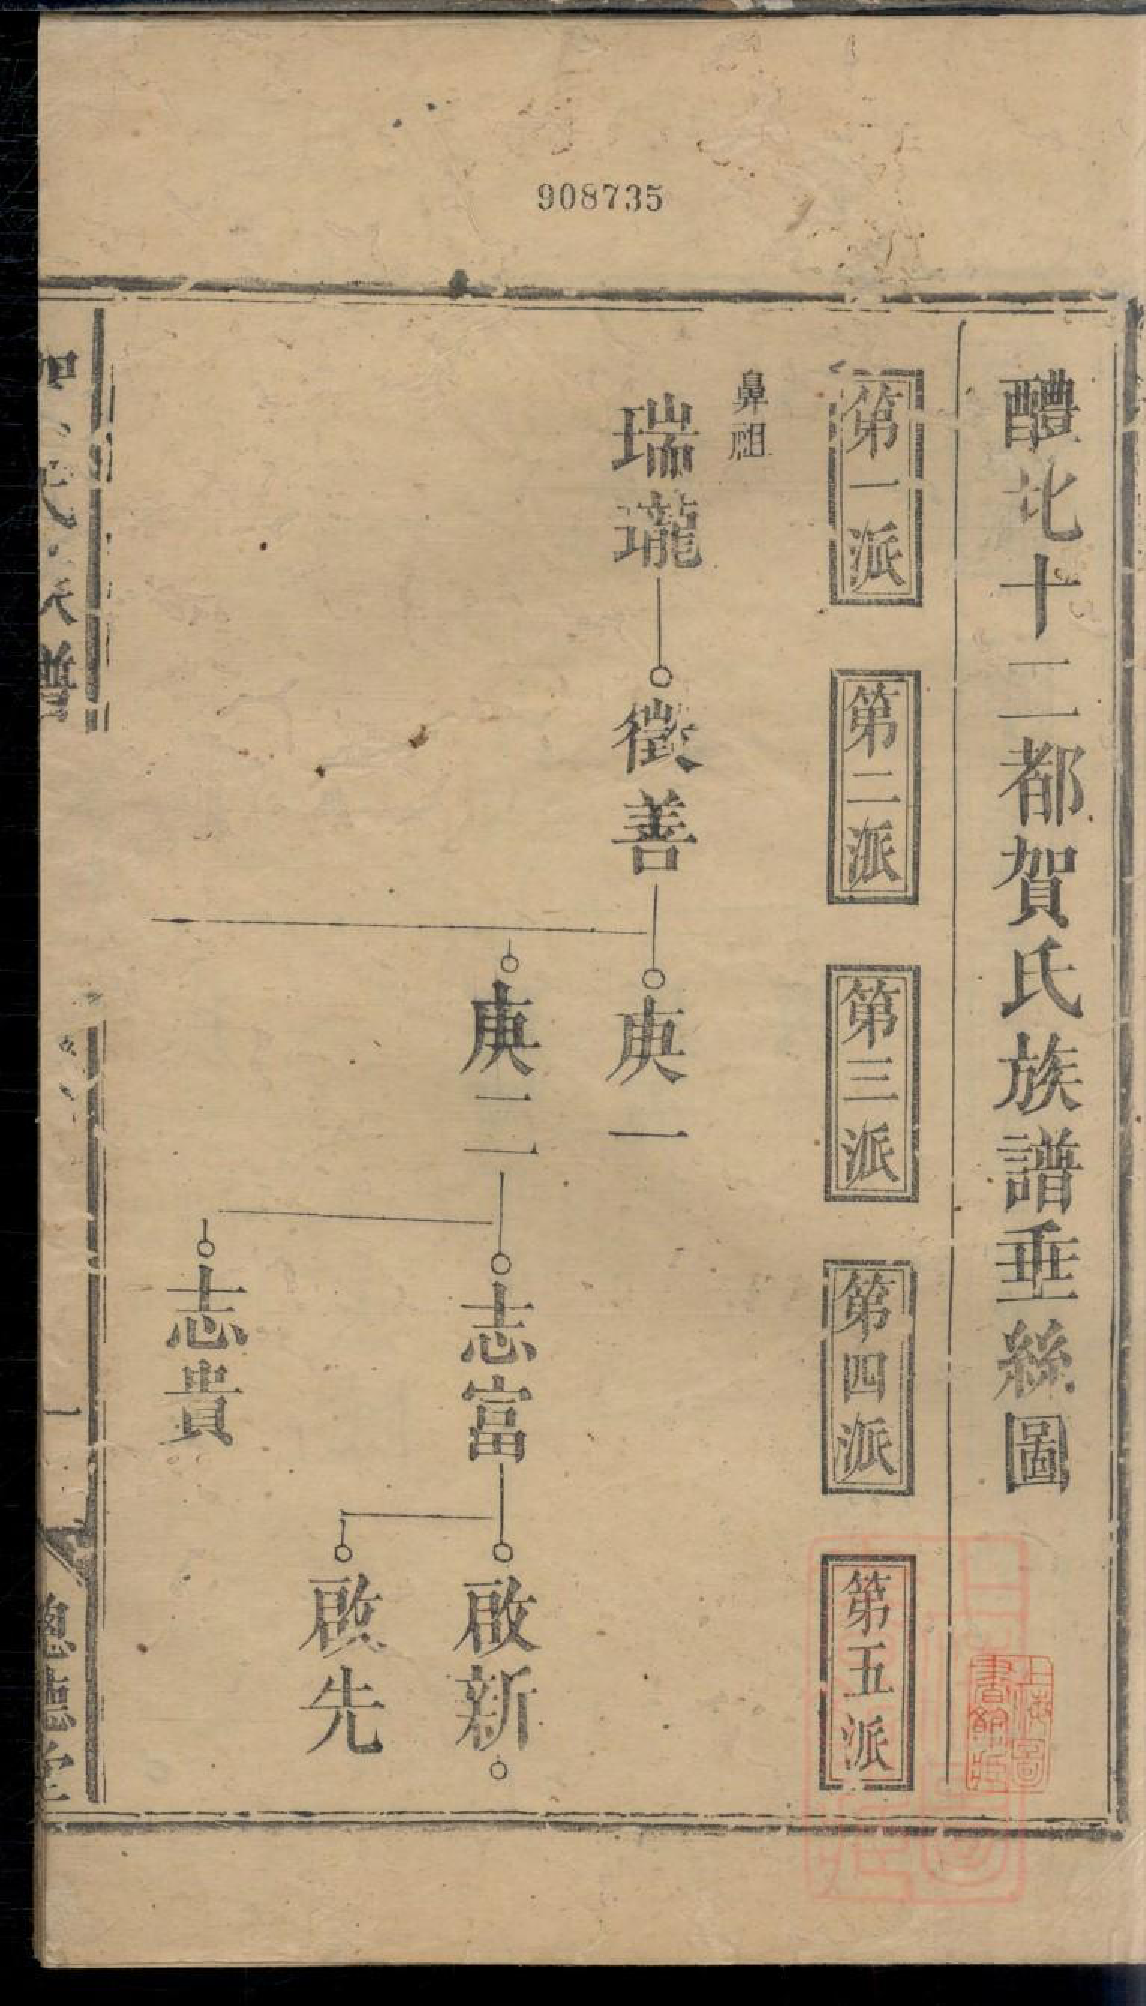 908735
醴北十二都賀氏族譜垂絲圖
第一派
第二派
第三派
第四派
第五派
鼻祖
瑞瓏
徵善
庚一
庚二
志富
志貴
啟新
啟先
氏族譜
一
德堂
上海圖
書館藏